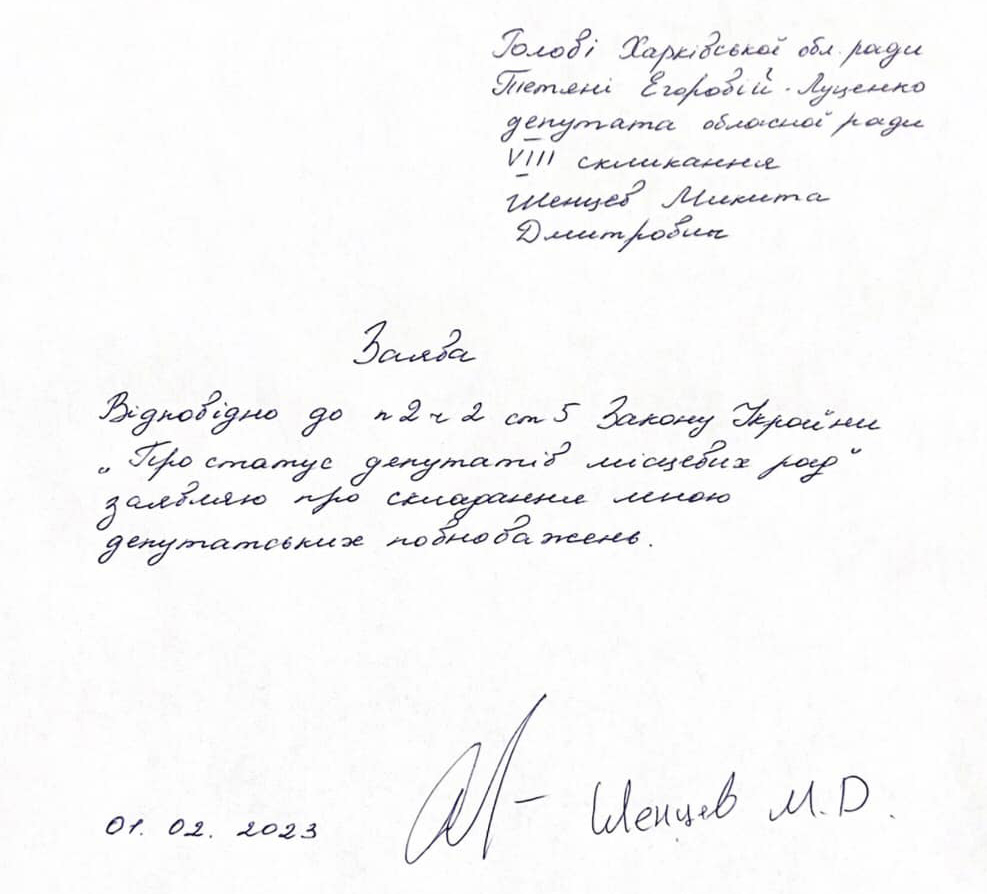 Голові Харківської обл. ради
Тетяні Егоровій-Луценко
депутата обласної ради
VIII скликання
Шенцев Микита
Дмитрович
Заява
Відповідно до п 2 ч 2 ст 5 Закону України
„Про статус депутатів місцевих рад“
заявляю про складання мною
депутатських повноважень.
01. 02. 2023
Шенцев М.D.